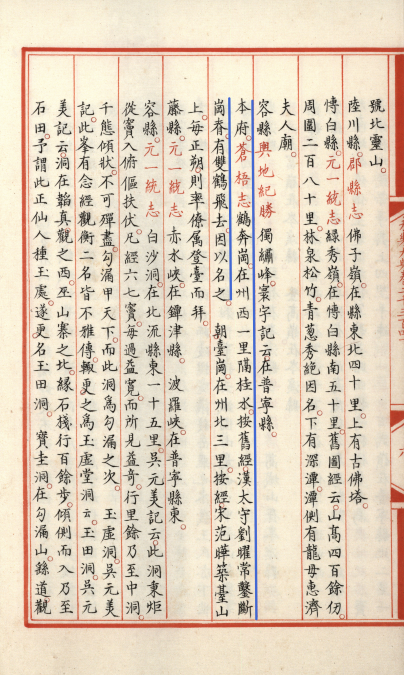 號北靈山
陸川縣郡縣志佛子嶺在縣東北四十里上有古佛塔
博白縣元一統志綠秀嶺在博白縣南五十里舊圖經云山高四百餘仞
周圍二百八十里林泉松竹青蔥秀絕因名下有深潭潭側有龍母惠濟
夫人廟
容縣輿地紀勝獨繡峰寰宇記云在普寧縣
本府蒼梧志鶴奔崗在州西一里隔桂水按舊經漢太守劉曜常鑿斷
崗脊有雙鶴飛去因以名之 朝臺崗在州北三里按經宋范曄築臺山
上每正朔則率僚属登臺而拜
藤縣元一統志赤水峽在鐔津縣 波羅峽在普寧縣東
容縣元一統志白沙洞在北流縣東一十五里吳元美記云此洞秉炬
從竇入俯傴扶伏凡經六七竇每過益寬而所見益奇行里餘乃至中洞
千態傾狀不可殫盡勾漏甲天下而此洞爲勾漏之次 玉虛洞吳元美
記此峯有念經觀衡二名皆不雅傳輙更之爲玉虛堂洞云玉田洞吳元
美記云洞在韜真觀之西巫山寨之北緣石棧行百餘步傾側而入乃至
石田予謂此正仙人種玉處遂更名玉田洞 寶圭洞在勾漏山繇道觀